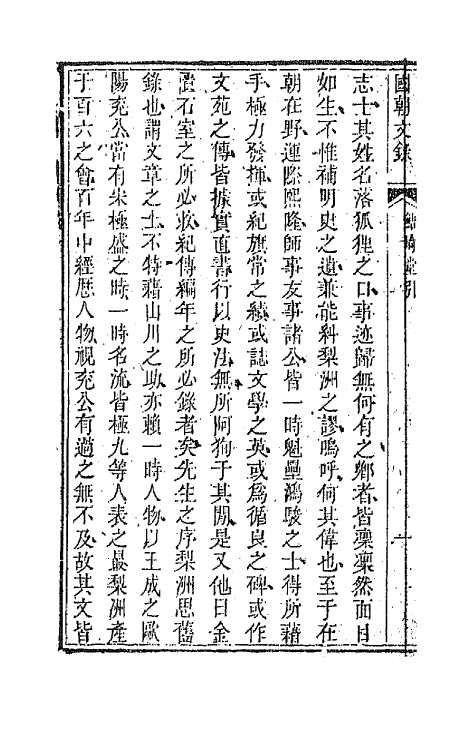 國朝文錄
鮚埼堂引
志士其姓名落狐狸之口事迹歸無何有之鄉者皆凜凜然面目
如生不惟補明史之遺兼能糾梨洲之謬嗚呼何其偉也至于在
朝在野運際熙隆師事友事諸公皆一時魁壘鴻駿之士得所藉
手極力發揮或紀旗常之績或誌文學之英或爲循良之碑或作
文苑之傳皆據實直書行以史法無所阿狥于其閒是又他日金
匱石室之所必收紀傳編年之所必錄者矣先生之序梨洲思舊
錄也謂文章之士不特藉山川之助亦賴一時人物以玉成之歐
陽兖公當有朱極盛之時一時名流皆極九等人表之最梨洲產
于百六之會百年中經歷人物視兖公有過之無不及故其文皆